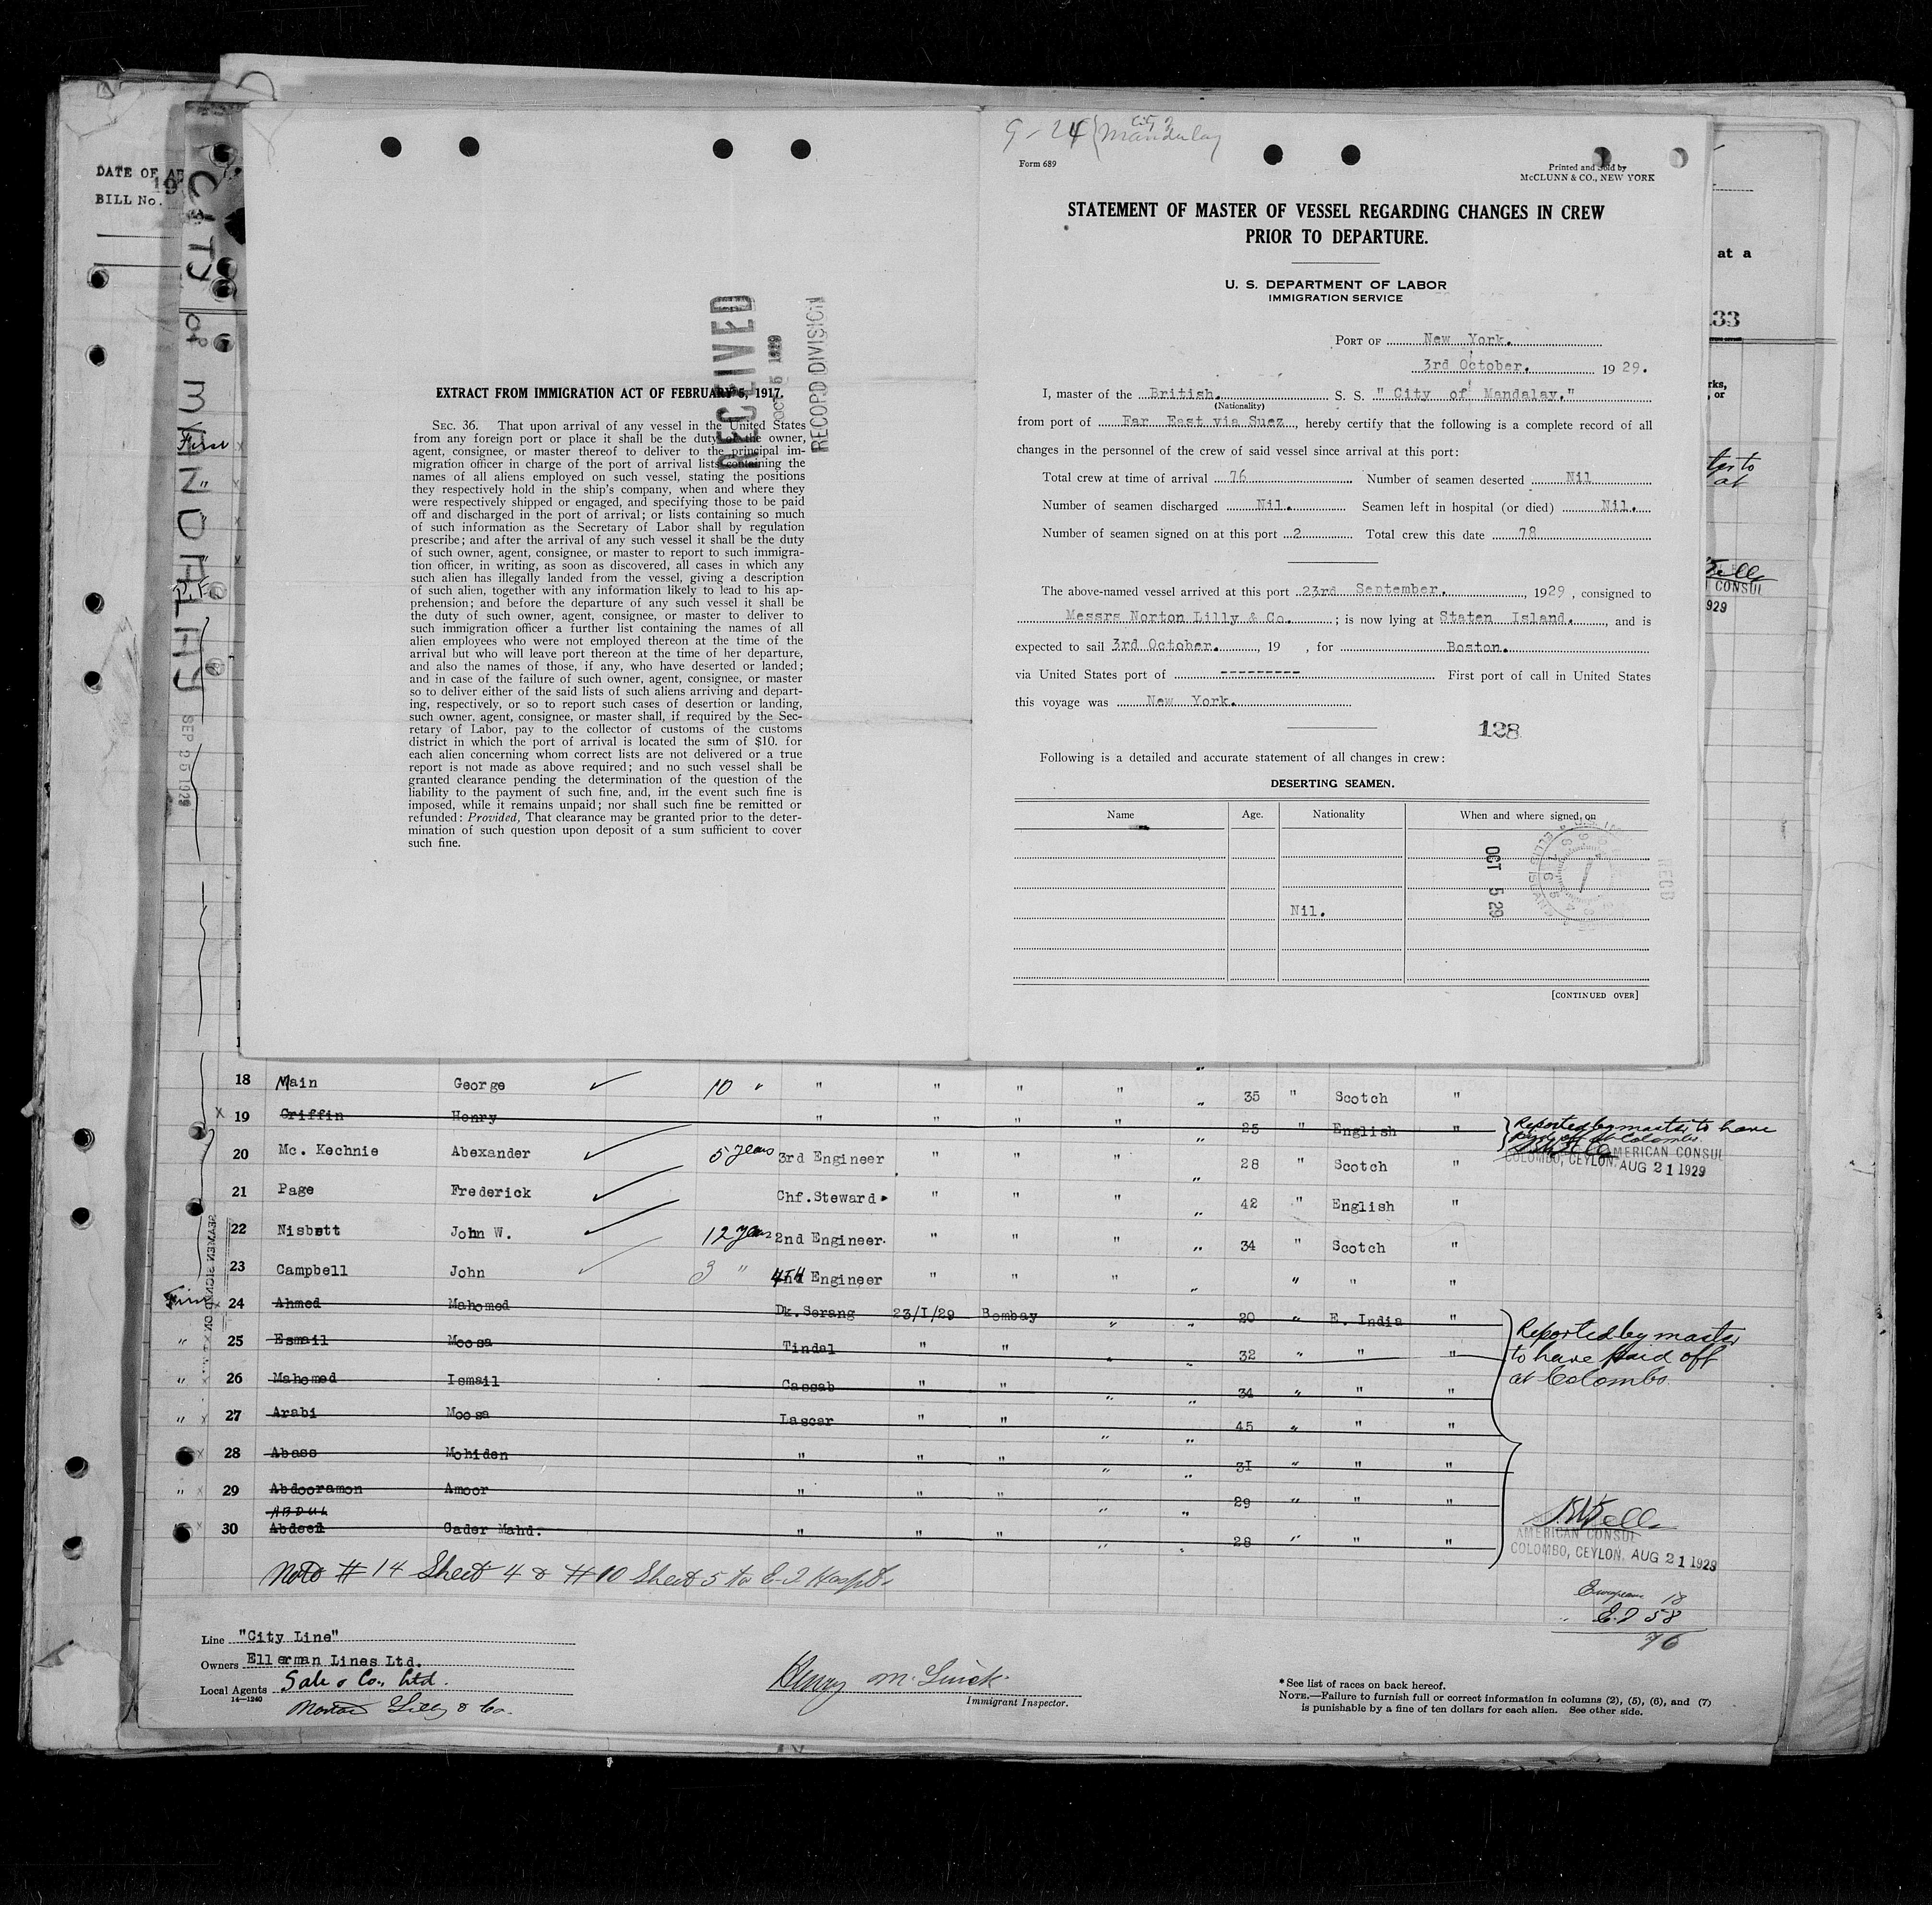 DATE OF
BILL No.
CITY OF MANDALAY
SEP 25 1929
First
EXTRACT FROM IMMIGRATION ACT OF FEBRUARY 5, 1917.
SEC. 36. That upon arrival of any vessel in the United States
from any foreign port or place it shall be the duty of the owner,
agent, consignee, or master thereof to deliver to the principal im-
migration officer in charge of the port of arrival lists containing the
names of all aliens employed on such vessel, stating the positions
they respectively hold in the ship's company, when and where they
were respectively shipped or engaged, and specifying those to be paid
off and discharged in the port of arrival; or lists containing so much
of such information as the Secretary of Labor shall by regulation
prescribe; and after the arrival of any such vessel it shall be the duty
of such owner, agent, consignee, or master to report to such immigra-
tion officer, in writing, as soon as discovered, all cases in which any
such alien has illegally landed from the vessel, giving a description
of such alien, together with any information likely to lead to his ap-
prehension; and before the departure of any such vessel it shall be
the duty of such owner, agent, consignee, or master to deliver to
such immigration officer a further list containing the names of all
alien employees who were not employed thereon at the time of the
arrival but who will leave port thereon at the time of her departure,
and also the names of those, if any, who have deserted or landed;
and in case of the failure of such owner, agent, consignee, or master
so to deliver either of the said lists of such aliens arriving and depart-
ing, respectively, or so to report such cases of desertion or landing,
such owner, agent, consignee, or master shall, if required by the Sec-
retary of Labor, pay to the collector of customs of the customs
district in which the port of arrival is located the sum of $10. for
each alien concerning whom correct lists are not delivered or a true
report is not made as above required; and no such vessel shall be
granted clearance pending the determination of the question of the
liability to the payment of such fine, and, in the event such fine is
imposed, while it remains unpaid; nor shall such fine be remitted or
refunded: Provided, That clearance may be granted prior to the deter-
mination of such question upon deposit of a sum sufficient to cover
such fine.
RECEIVED
OCT 5 1929
RECORD DIVISION
9-24 City of Mandalay
Form 689
Printed and Sold by
McCLUNN & CO., NEW YORK
STATEMENT OF MASTER OF VESSEL REGARDING CHANGES IN CREW
PRIOR TO DEPARTURE.
U. S. DEPARTMENT OF LABOR
IMMIGRATION SERVICE
PORT OF New York.
3rd October. 1929.
I, master of the British. S. S. " City of Mandalay."
(Nationality)
from port of Far East via Suez, hereby certify that the following is a complete record of all
changes in the personnel of the crew of said vessel since arrival at this port:
Total crew at time of arrival 76 Number of seamen deserted Nil
Number of seamen discharged Nil. Seamen left in hospital (or died) Nil.
Number of seamen signed on at this port 2 Total crew this date 78
The above-named vessel arrived at this port 23rd September., 1929, consigned to
Messrs Norton Lilly & Co. ; is now lying at Staten Island., and is
expected to sail 3rd October., 19 , for Boston.
via United States port of --------- First port of call in United States
this voyage was New York.
128
Following is a detailed and accurate statement of all changes in crew:
DESERTING SEAMEN.
Name Age. Nationality When and where signed on
Nil.
OCT 5 29
RECD
[CONTINUED OVER]
at a
133
CONSUL
1929
18 Main George 10 " " " " " " 35 " Scotch "
19 Griffin Henry " " " " " 25 " English " Reported by master to have
AMERICAN CONSUL
COLOMBO, CEYLON. AUG 21 1929
20 Mc. Kechnie Abexander 5 years 3rd Engineer " " " " 28 " Scotch "
21 Page Frederick Chf. Steward. " " " " 42 " English "
22 Nisbett John W. 12 years 2nd Engineer. " " " " 34 " Scotch "
23 Campbell John 3 " 4TH Engineer " " " " " " "
24 Ahmed Mahomed Dk. Serang 23/I/29 Bombay " " 20 " E. India "
25 Esmail Moosa Tindal " " " " 32 " " "
26 Mahomed Ismail Cassab " " " " 34 " " "
27 Arabi Moosa Lascar " " " " 45 " " "
28 Abass Mohiden " " " " " 31 " " "
29 Abdooramon Amoor " " " " " 29 " " "
ABDUL
30 Abdeed Cader Mahd. " " " " " 28 " " "
Reported by master
to have paid off
at Colombo.
AMERICAN CONSUL
COLOMBO, CEYLON, AUG 21 1929
Note #14 Sheet 4 & #10 Sheet 5 to E.I Hospt.
European 18
E.I 58
76
Line "City Line"
Owners Ellerman Lines Ltd.
Local Agents Sale & Co., Ltd.
14—1240
Norton Lilly & Co.
Immigrant Inspector.
* See list of races on back hereof.
NOTE.—Failure to furnish full or correct information in columns (2), (5), (6), and (7)
is punishable by a fine of ten dollars for each alien. See other side.